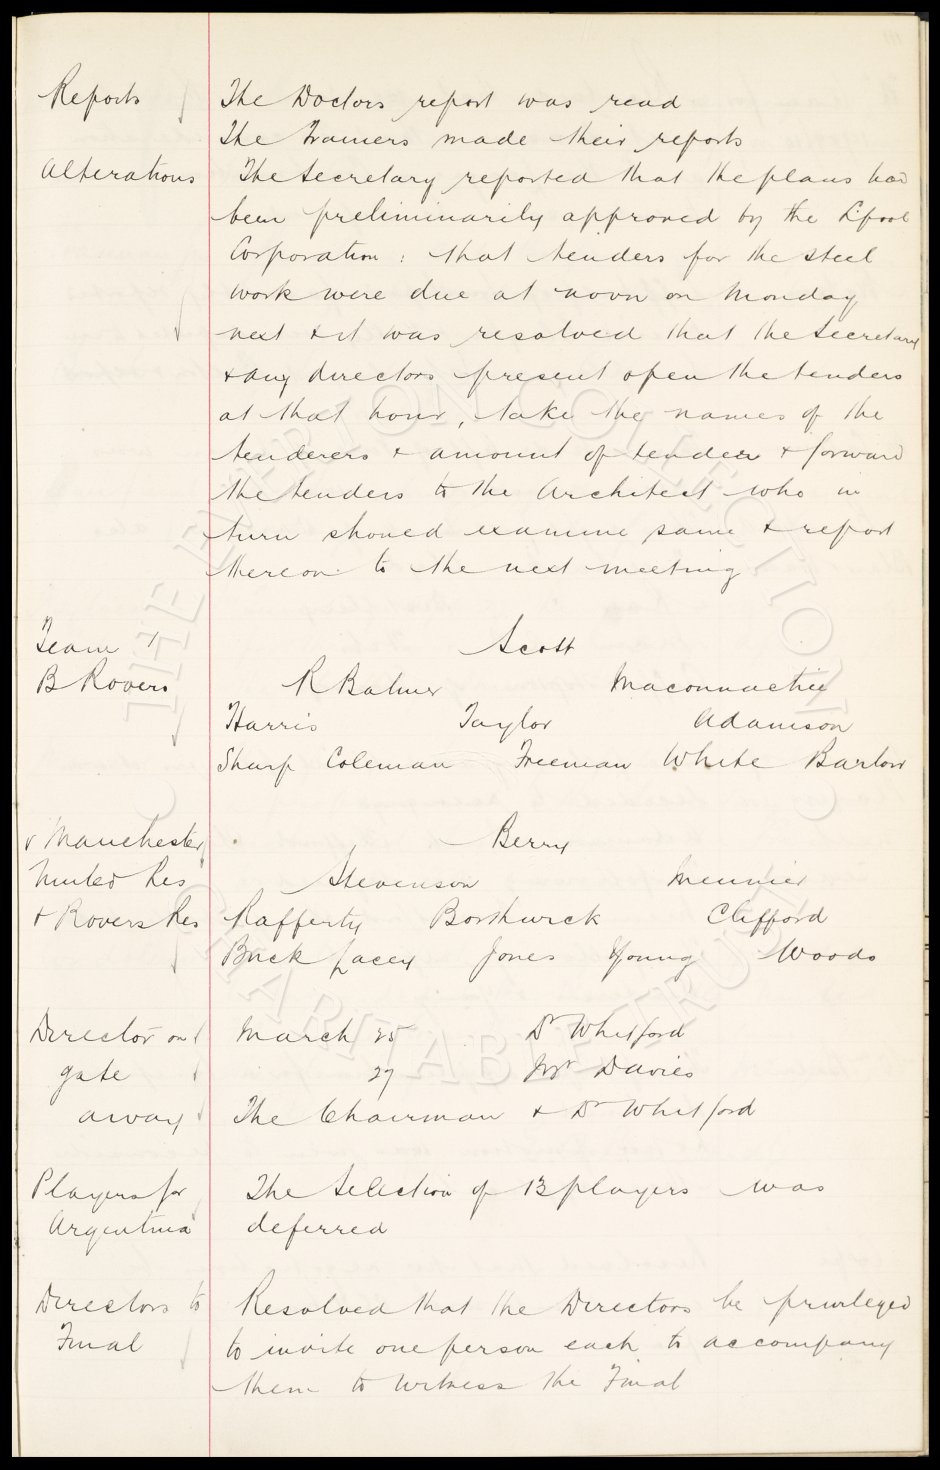 Reports The Doctors report was read
The Trainers made their reports
Alterations The Secretary reported that the plans had
been preliminarily approved by the L'pool
Corporation : that tenders for the steel
work were due at noon on Monday
next & it was resolved that the Secretary
& any directors present open the tenders
at that hour, take the names of the
tenderers & amount of tender & forward
the tenders to the Architect who in
turn should examine same & report
thereon to the next meeting
Team v Scott
B Rovers R Balmer Maconnachie
Harris Taylor Adamson
Sharp Coleman Freeman White Bartow
v Manchester Berry
United Res Stevenson Meunier
& Rovers Res Rafferty Borthwick Clifford
Buck Lacey Jones Young Woods
Director on March 25 Dr Whitford
gate 27 Mr Davies
away The Chairman & Dr Whitford
Players for The Selection of 13 players was
Argentina deferred
Directors to Resolved that the Directors be privileged
Final to invite one person each to accompany
them to witness the Final
THE EVERTON COLLECTION
CHARITABLE TRUST